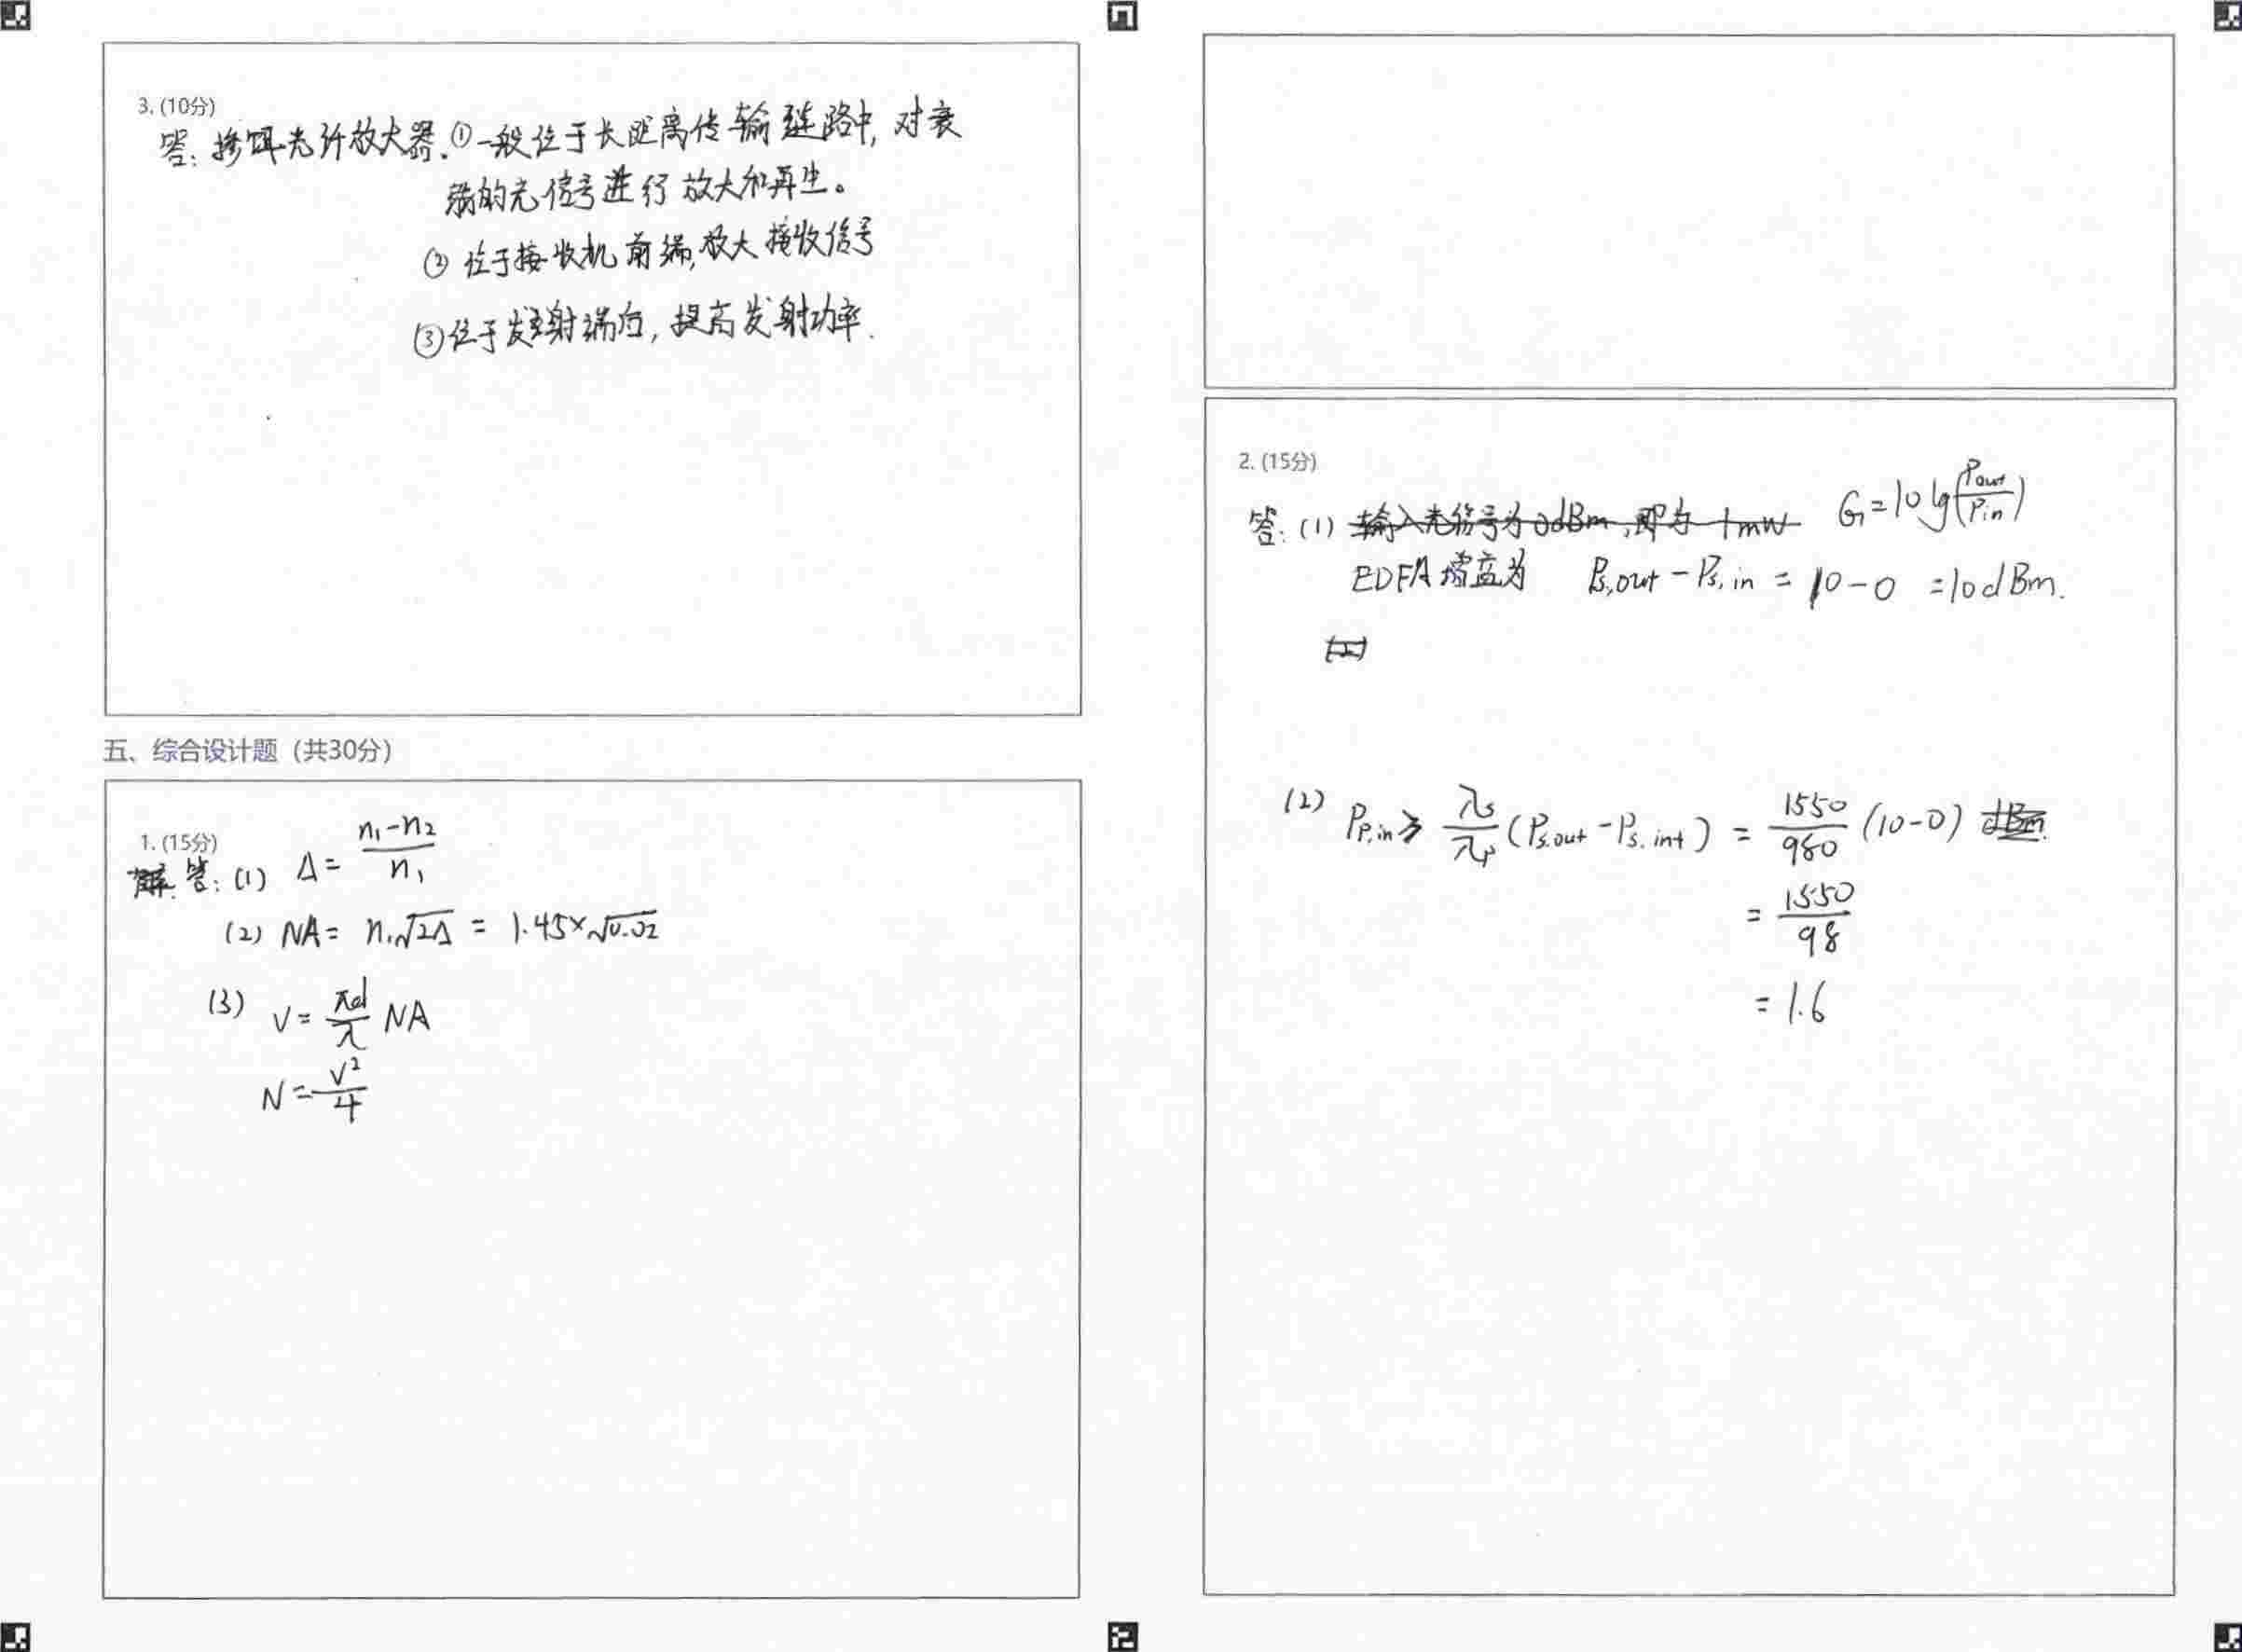 3. (10分)
答: 掺饵光纤放大器. ① 一般位于长距离传输链路中, 对衰
弱的光信号进行放大和再生。
② 位于接收机前端, 放大接收信号
③ 位于发射端后, 提高发射功率.
五、综合设计题（共30分）
1. (15分)
答: (1) Δ = (n₁-n₂)/n₁
(2) NA = n₁√2Δ = 1.45×√0.02
(3) V = πd/λ NA
N = V²/4
2. (15分)
答: (1) 输入光信号为0dBm, 即为 1mW G = 10 lg(Pout/Pin)
EDFA增益为 Ps,out - Ps,in = 10-0 = 10dBm.
(2)
(2) Pp,in ≥ λs/λp (Ps.out - Ps.int) = 1550/980 (10-0) dBm.
= 1550/98
= 1.6